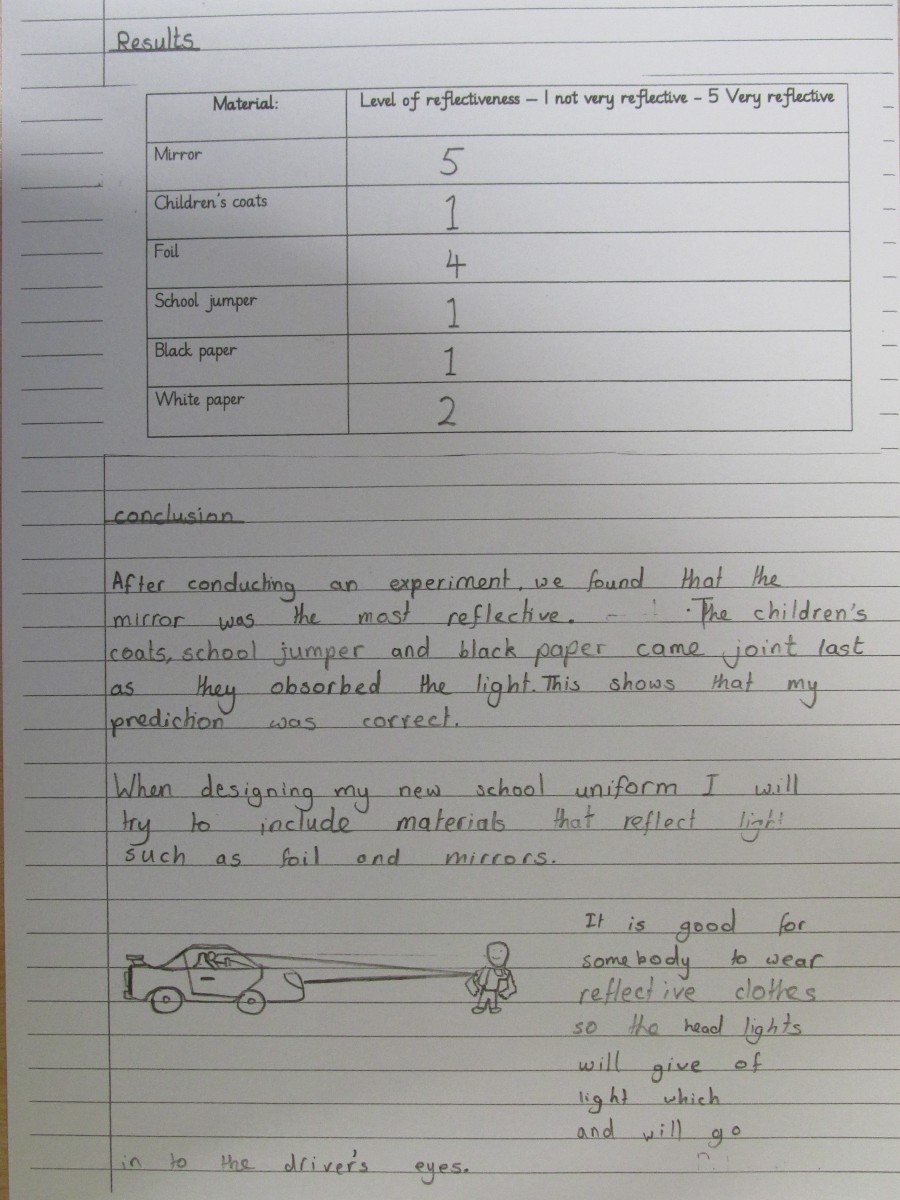 Results
Material: Level of reflectiveness – 1 not very reflective - 5 Very reflective
Mirror 5
Children's coats 1
Foil 4
School jumper 1
Black paper 1
White paper 2
conclusion
After conducting an experiment, we found that the
mirror was the most reflective. The children's
coats, school jumper and black paper came joint last
as they obsorbed the light. This shows that my
prediction was correct.
When designing my new school uniform I will
try to include materials that reflect light
such as foil and mirrors.
It is good for
somebody to wear
reflective clothes
so the head lights
will give of
light which
and will go
in to the driver's eyes.